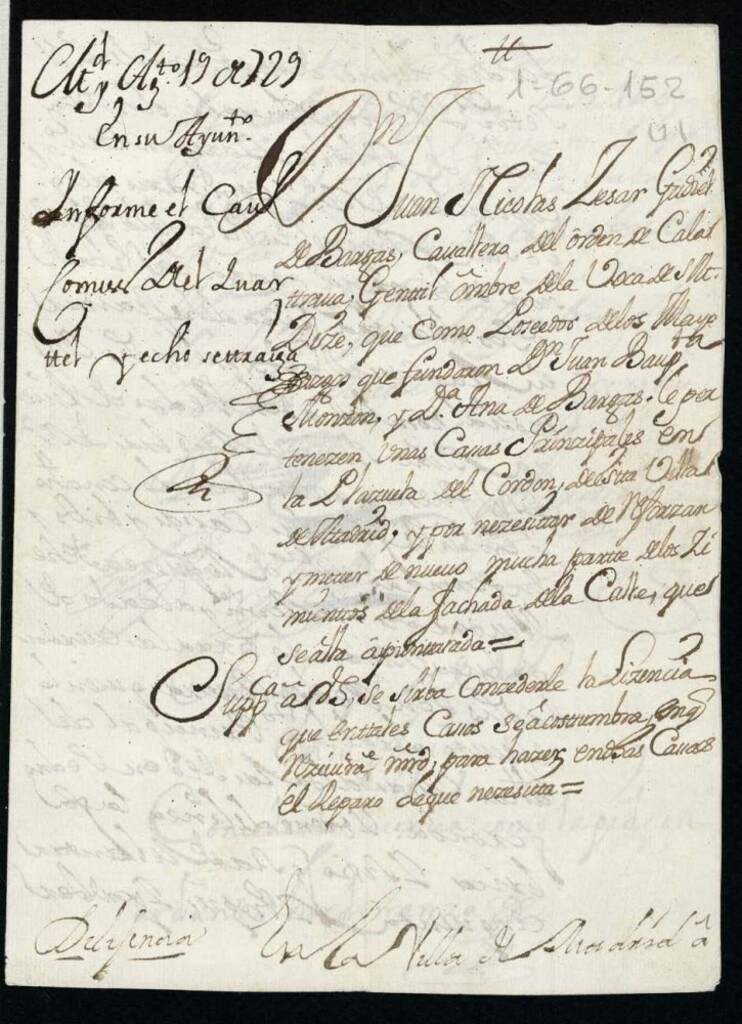 tt
1-66-152
(1)
Md y Agto 19 de 729
En su Ayunto.
Informe el Cavo
Comiso Del quar
ttel y echo se ttraiga
Dn Juan Nicolas Zesar Gudiel
de Bargas, Cavallero del orden de Cala
ttrava, Gentil ombre de la Voca de M.
Dize, que como Poseedor de los Mayo
razgos que fundaron Dn Juan Bapta
Monzon, y Da Ana de Bargas. le per
tenezen unas Casas Prinzipales en
la Plazuela del Cordon, de esta Villa
de Madrid, y por nezesitar de Reforzar
y meter de nuevo mucha partte de los Zi
mientos de la fachada de la Calle, que
se alla apionttada =
Suppca a VS, se sirba Conzederle la Lizencia
que en ttales Casos se acostumbra, en q
Rezivira mrd, para hazer en dhas Casas
el Reparo de que nezesita =
Delixencia
En la Villa de Madrid a